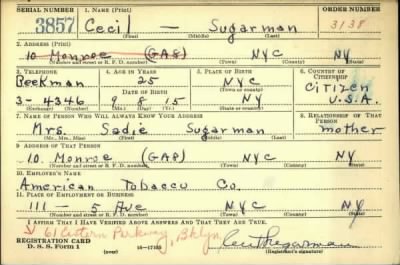 SERIAL NUMBER 1. NAME (Print) ORDER NUMBER
3857 Cecil — Sugarman 3138
(First) (Middle) (Last)
2. ADDRESS (Print)
10 Monroe (GA8) NYC NY
(Number and street or R. F. D. number) (Town) (County) (State)
3. TELEPHONE 4. AGE IN YEARS 5. PLACE OF BIRTH 6. COUNTRY OF CITIZENSHIP
Beekman 25 NYC Citizen
DATE OF BIRTH (Town or county)
3-4346 9 8 15 NY U.S.A.
(Mo.) (Day) (Yr.) (State or country)
7. NAME OF PERSON WHO WILL ALWAYS KNOW YOUR ADDRESS 8. RELATIONSHIP OF THAT PERSON
Mrs. Sadie Sugarman mother
(Mr., Mrs., Miss) (First) (Middle) (Last)
9. ADDRESS OF THAT PERSON
10. Monroe (GA8) NYC NY
(Number and street or R. F. D. number) (Town) (County) (State)
10. EMPLOYER'S NAME
American Tobacco Co.
11. PLACE OF EMPLOYMENT OR BUSINESS
111 — 5 Ave NYC NY
(Number and street or R. F. D. number) (Town) (County) (State)
I AFFIRM THAT I HAVE VERIFIED ABOVE ANSWERS AND THAT THEY ARE TRUE.
61 Eastern Parkway, Bklyn
REGISTRATION CARD
D. S. S. FORM 1 (over) (Registrant's signature)